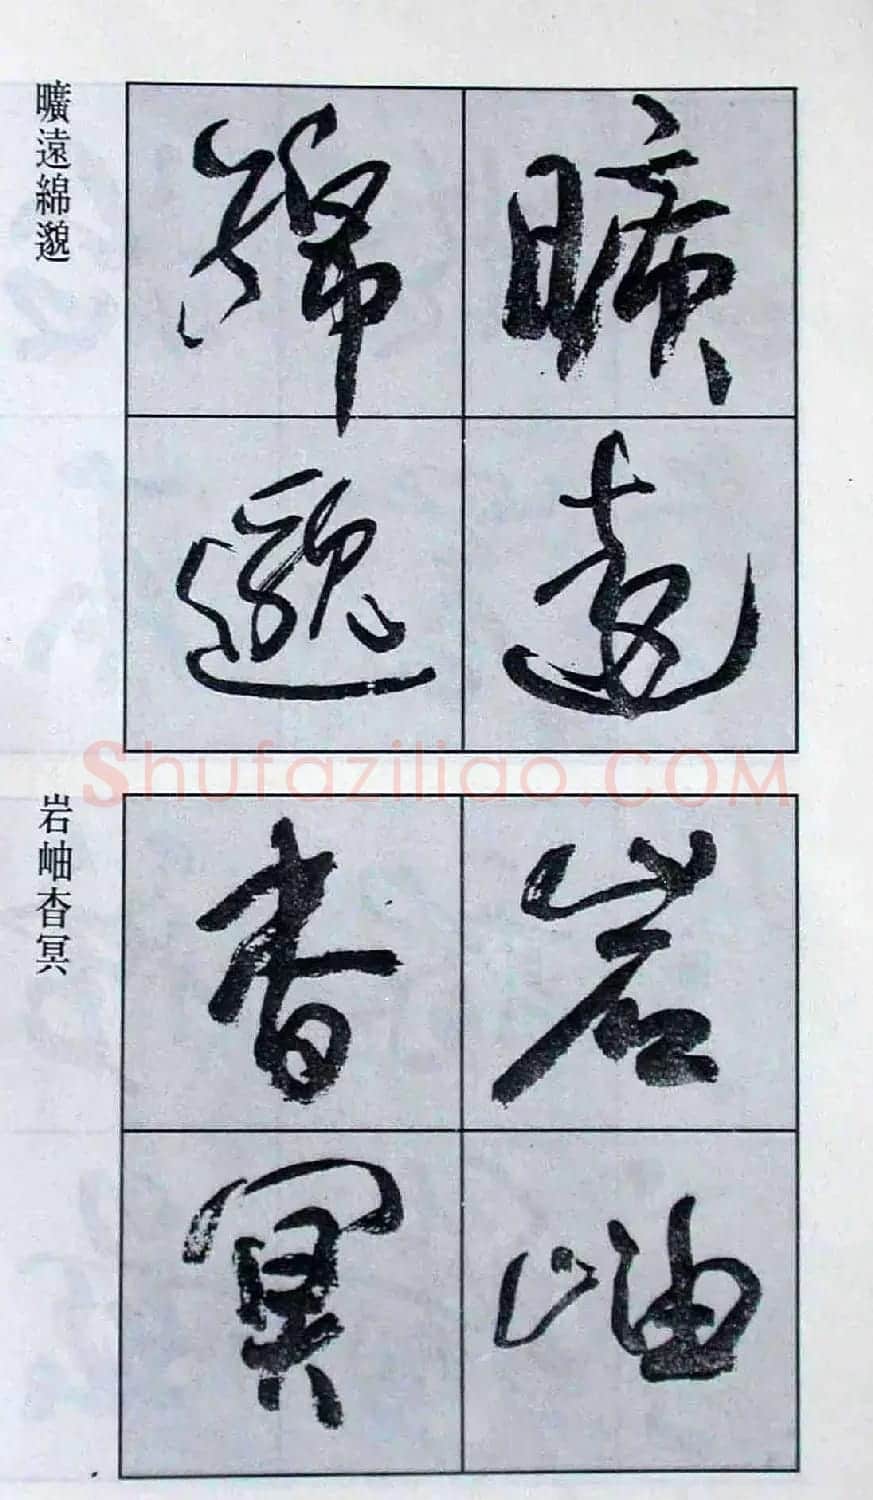 曠遠
綿邈
曠遠綿邈
岩岫
杳冥
岩岫杳冥
Shufaziliao.COM